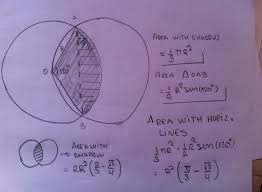 A
R
O
120°
B
AREA WITH SHADOW
= 1/3 πR²
AREA ΔOAB
= 1/2 R² SIN(120°)
AREA WITH HORIZ.
LINES
1/3 πR² - 1/2 R² SIN(120°)
= R² (π/3 - √3/4)
AREA WITH
SHADOW
= 2R² (π/3 - √3/4)